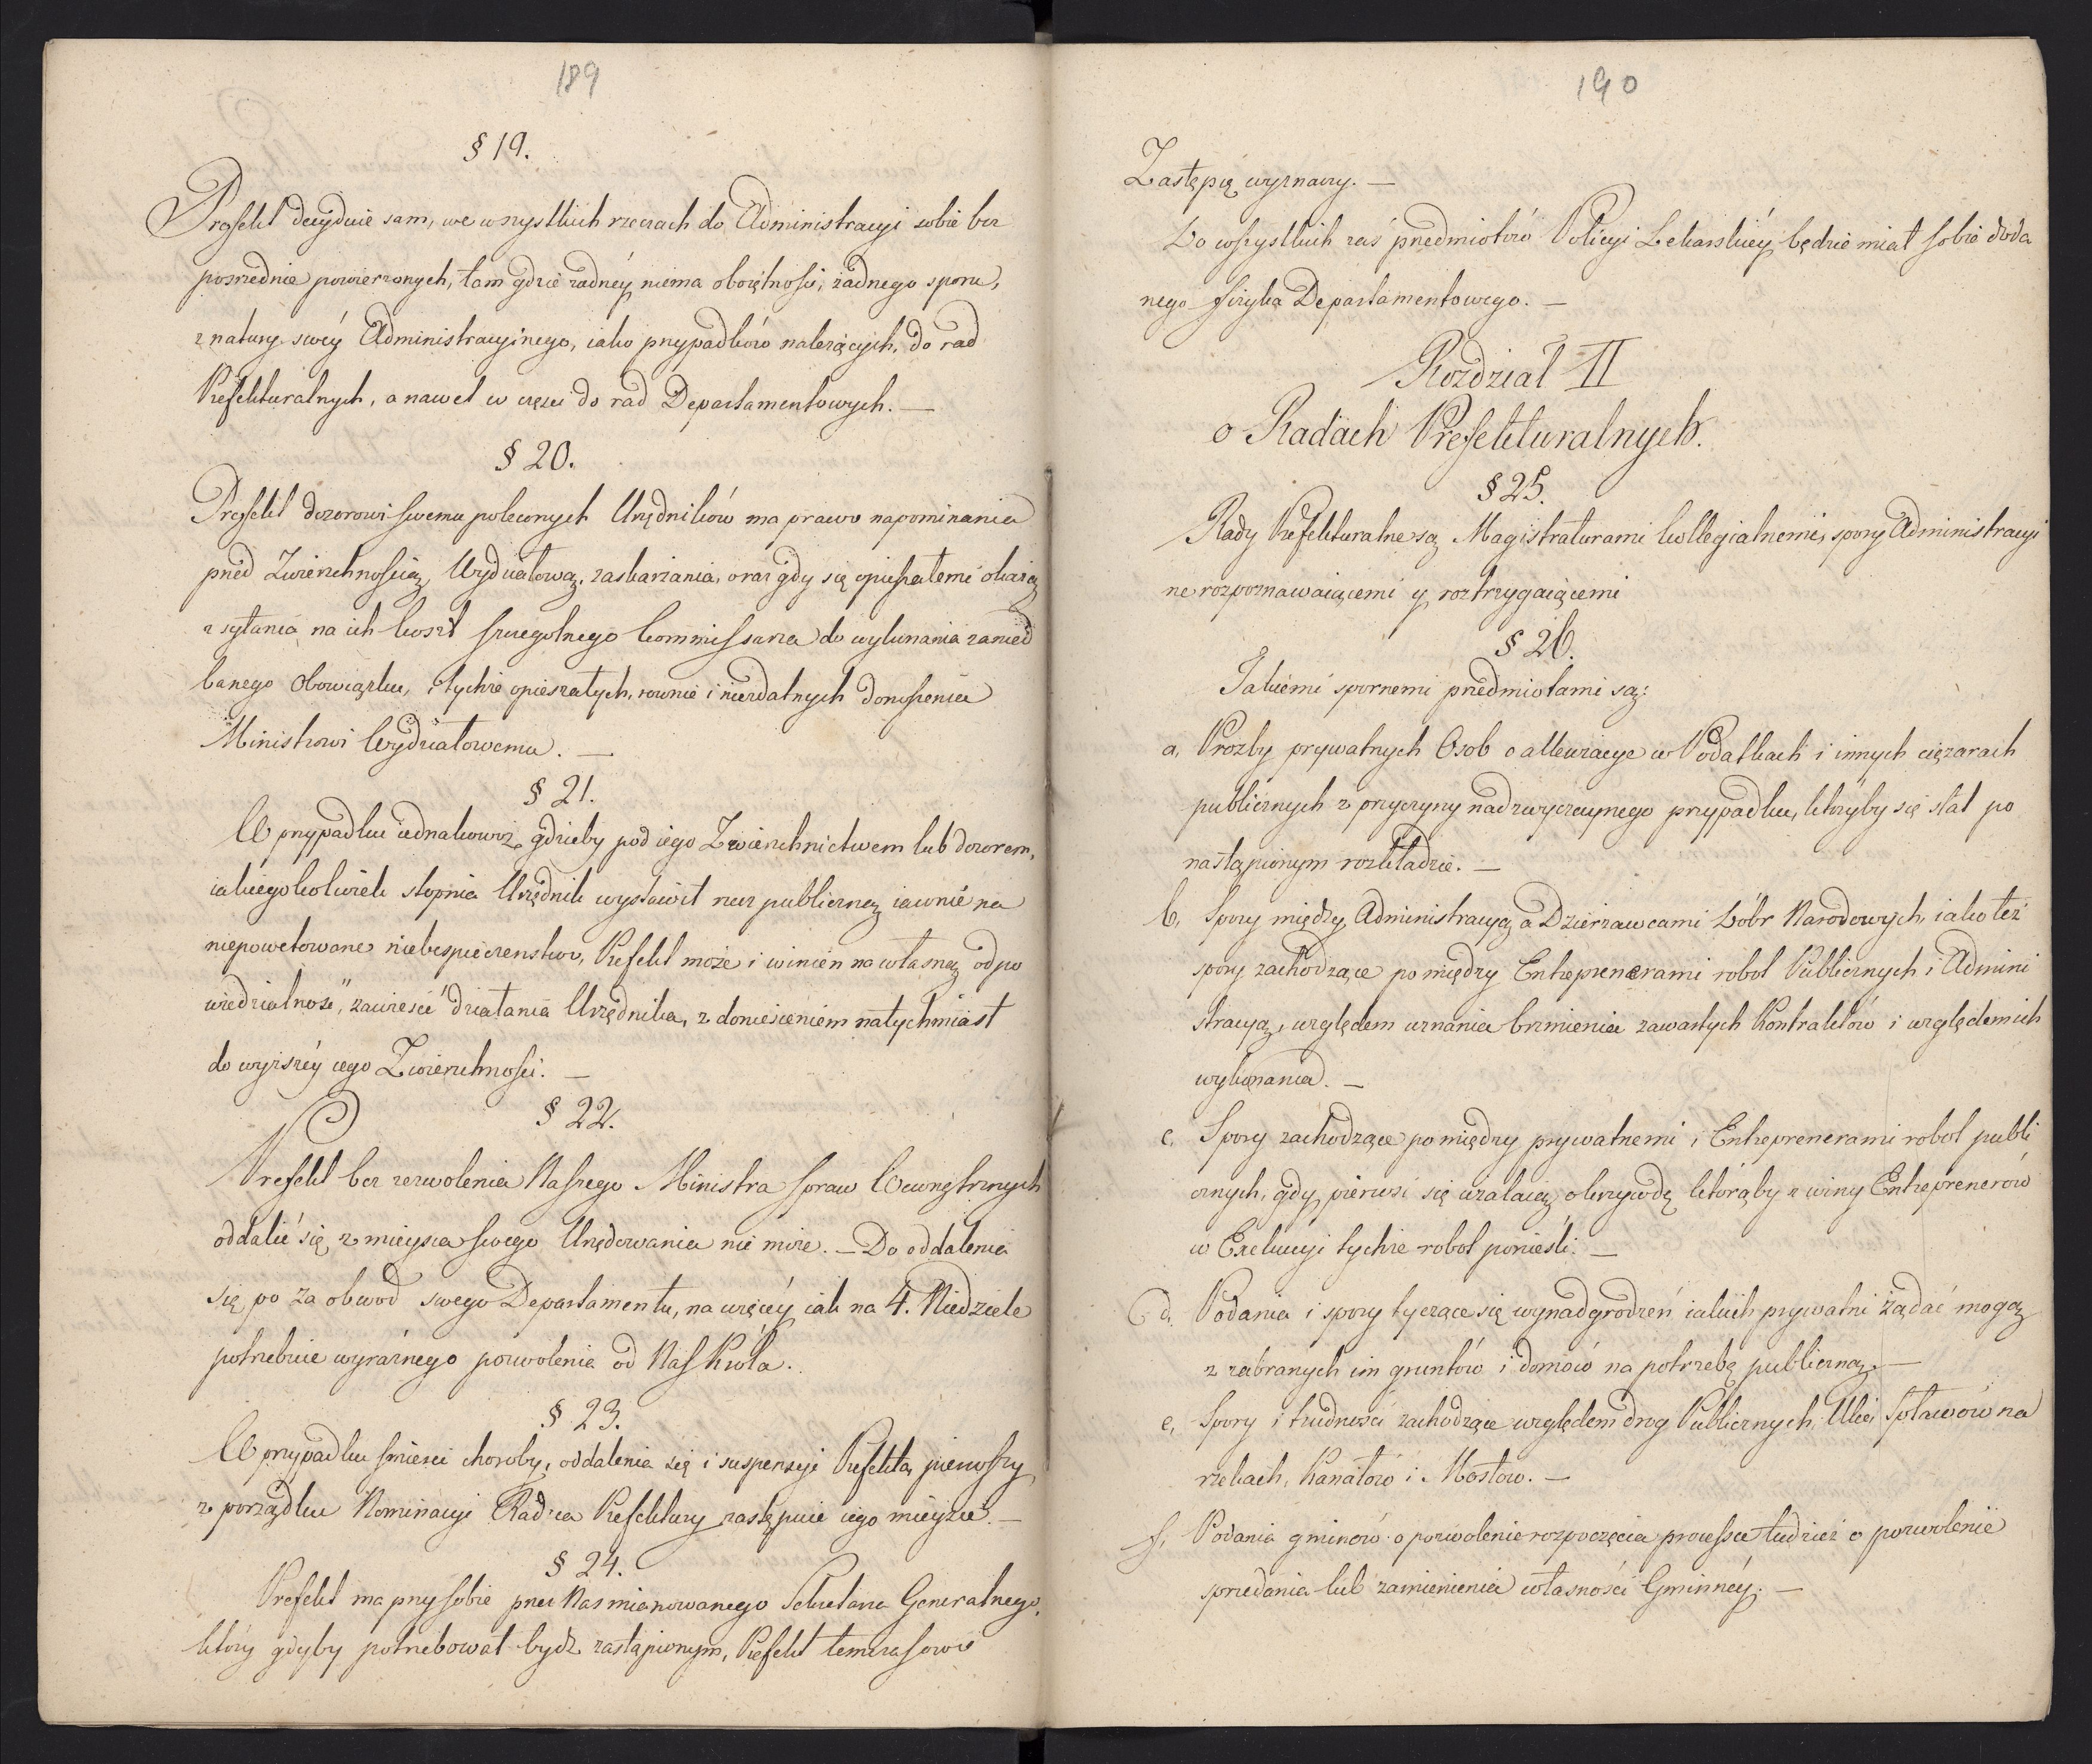 189
§ 19.
Prefekt decyduie sam, we wszystkich rzeczach do Administracyi sobie bez
pośrednie powierzonych, tam gdzie żadnéy niema obojętności, żadnego sporu,
z natury swéy Administracyinego, iako przypadków należących, do rad
Prefekturalnych, a nawet w części do rad Departamentowych. —
§ 20.
Prefekt dozorowi swemu poleconych Urzędników ma prawo napominania
przed Zwierzchnością Wydziałową, zaskarżania, oraz gdy się opieszałemi okażą
zsyłania na ich koszt szczegolnego Kommissarza do wykonania zanied
banego Obowiązku, i tychże opieszałych, rownie i niezdatnych donoszenia
Ministrowi Wydziałowemu. —
§ 21.
W przypadku iednakowoż, gdzieby pod iego Zwierzchnictwem lub dozorem,
iakiegokolwiek stopnia Urzędnik wystawił rzecz publiczną iawnie na
niepowetowane niebespieczenstwo, Prefekt może i winien na własną odpo
wiedzialność, zawiesić działania Urzędnika, z doniesieniem natychmiast
do wyższéy iego Zwierzchności. —
§ 22.
Prefekt bez zezwolenia Naszego Ministra spraw Wewnętrznych
oddalić się z mieysca swego Urzędowania nie może. — Do oddalenia
się po za obwod swego Departamentu, na więcéy iak na 4. Niedziele
potrzebuie wyraźnego pozwolenia od Nas Króla.
§ 23.
W przypadku śmierci choroby, oddalenia się i suspensyi Prefekta, pierwszy
z porządku Nominacyi Radzca Prefektury zastępuie iego mieysce. —
§ 24.
Prefekt ma przy sobie przez Nas mianowanego Sekretarza Generalnego,
który gdyby potrzebował bydź zastąpionym, Prefekt temczasowie
190
Zastępcę wyznaczy. —
Do wszystkich zaś przedmiotów Policyi Lekarskiéy będzie miał sobie doda
nego fizyka Departamentowego. —
Rozdział II
o Radach Prefekturalnych.
§ 25.
Rady Prefekturalne są Magistraturami kollegialnemi, spory Administracyi
ne rozpoznawaiącemi y roztrzygaiącemi
§ 26.
Takiemi spornemi przedmiotami są:
a, Prozby prywatnych Osob o allewiacye w Podatkach i innych ciężarach
publicznych z przyczyny nadzwyczaynego przypadku, któryby się stał po
nastąpionym rozkładzie. —
b, Spory między Administracyą a Dzierzawcami Dóbr Narodowych, iako też
spory zachodzące pomiędzy Entreprenerami robot Publicznych i Admini
stracyą, względem uznania brzmienia zawartych Kontraktów i względem ich
wykonania. —
c, Spory zachodzące pomiędzy prywatnemi i Entreprenerami robot publi
cznych, gdy pierwsi się użalaią, o krzywdę którąby z winy Entreprenerów
w Exekucyi tychże robot ponieśli. —
d, Podania i spory tyczące się wynadgrodzeń iakich prywatni żądać mogą
z zabranych im gruntów i domów na potrzebę publiczną. —
e, Spory i trudności zachodzące względem drog Publicznych, Ulic, Spławów na
rzekach, Kanałów i Mostow. —
f, Podania gminów o pozwolenie rozpoczęcia processu tudzież o pozwolenie
sprzedania lub zamienienia własności Gminnéy. —